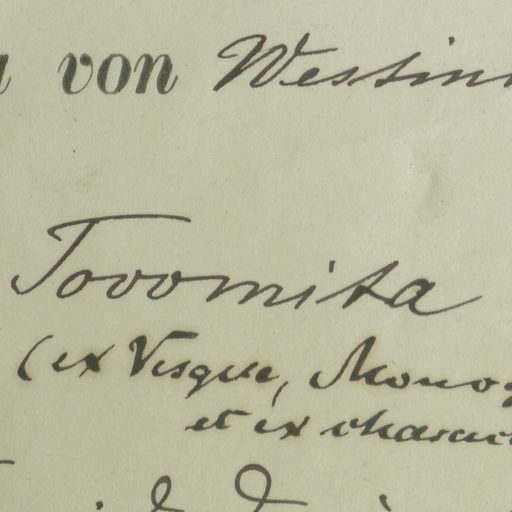 von Westin
Tovomita
(ex Vesque, Monog
et ex charac